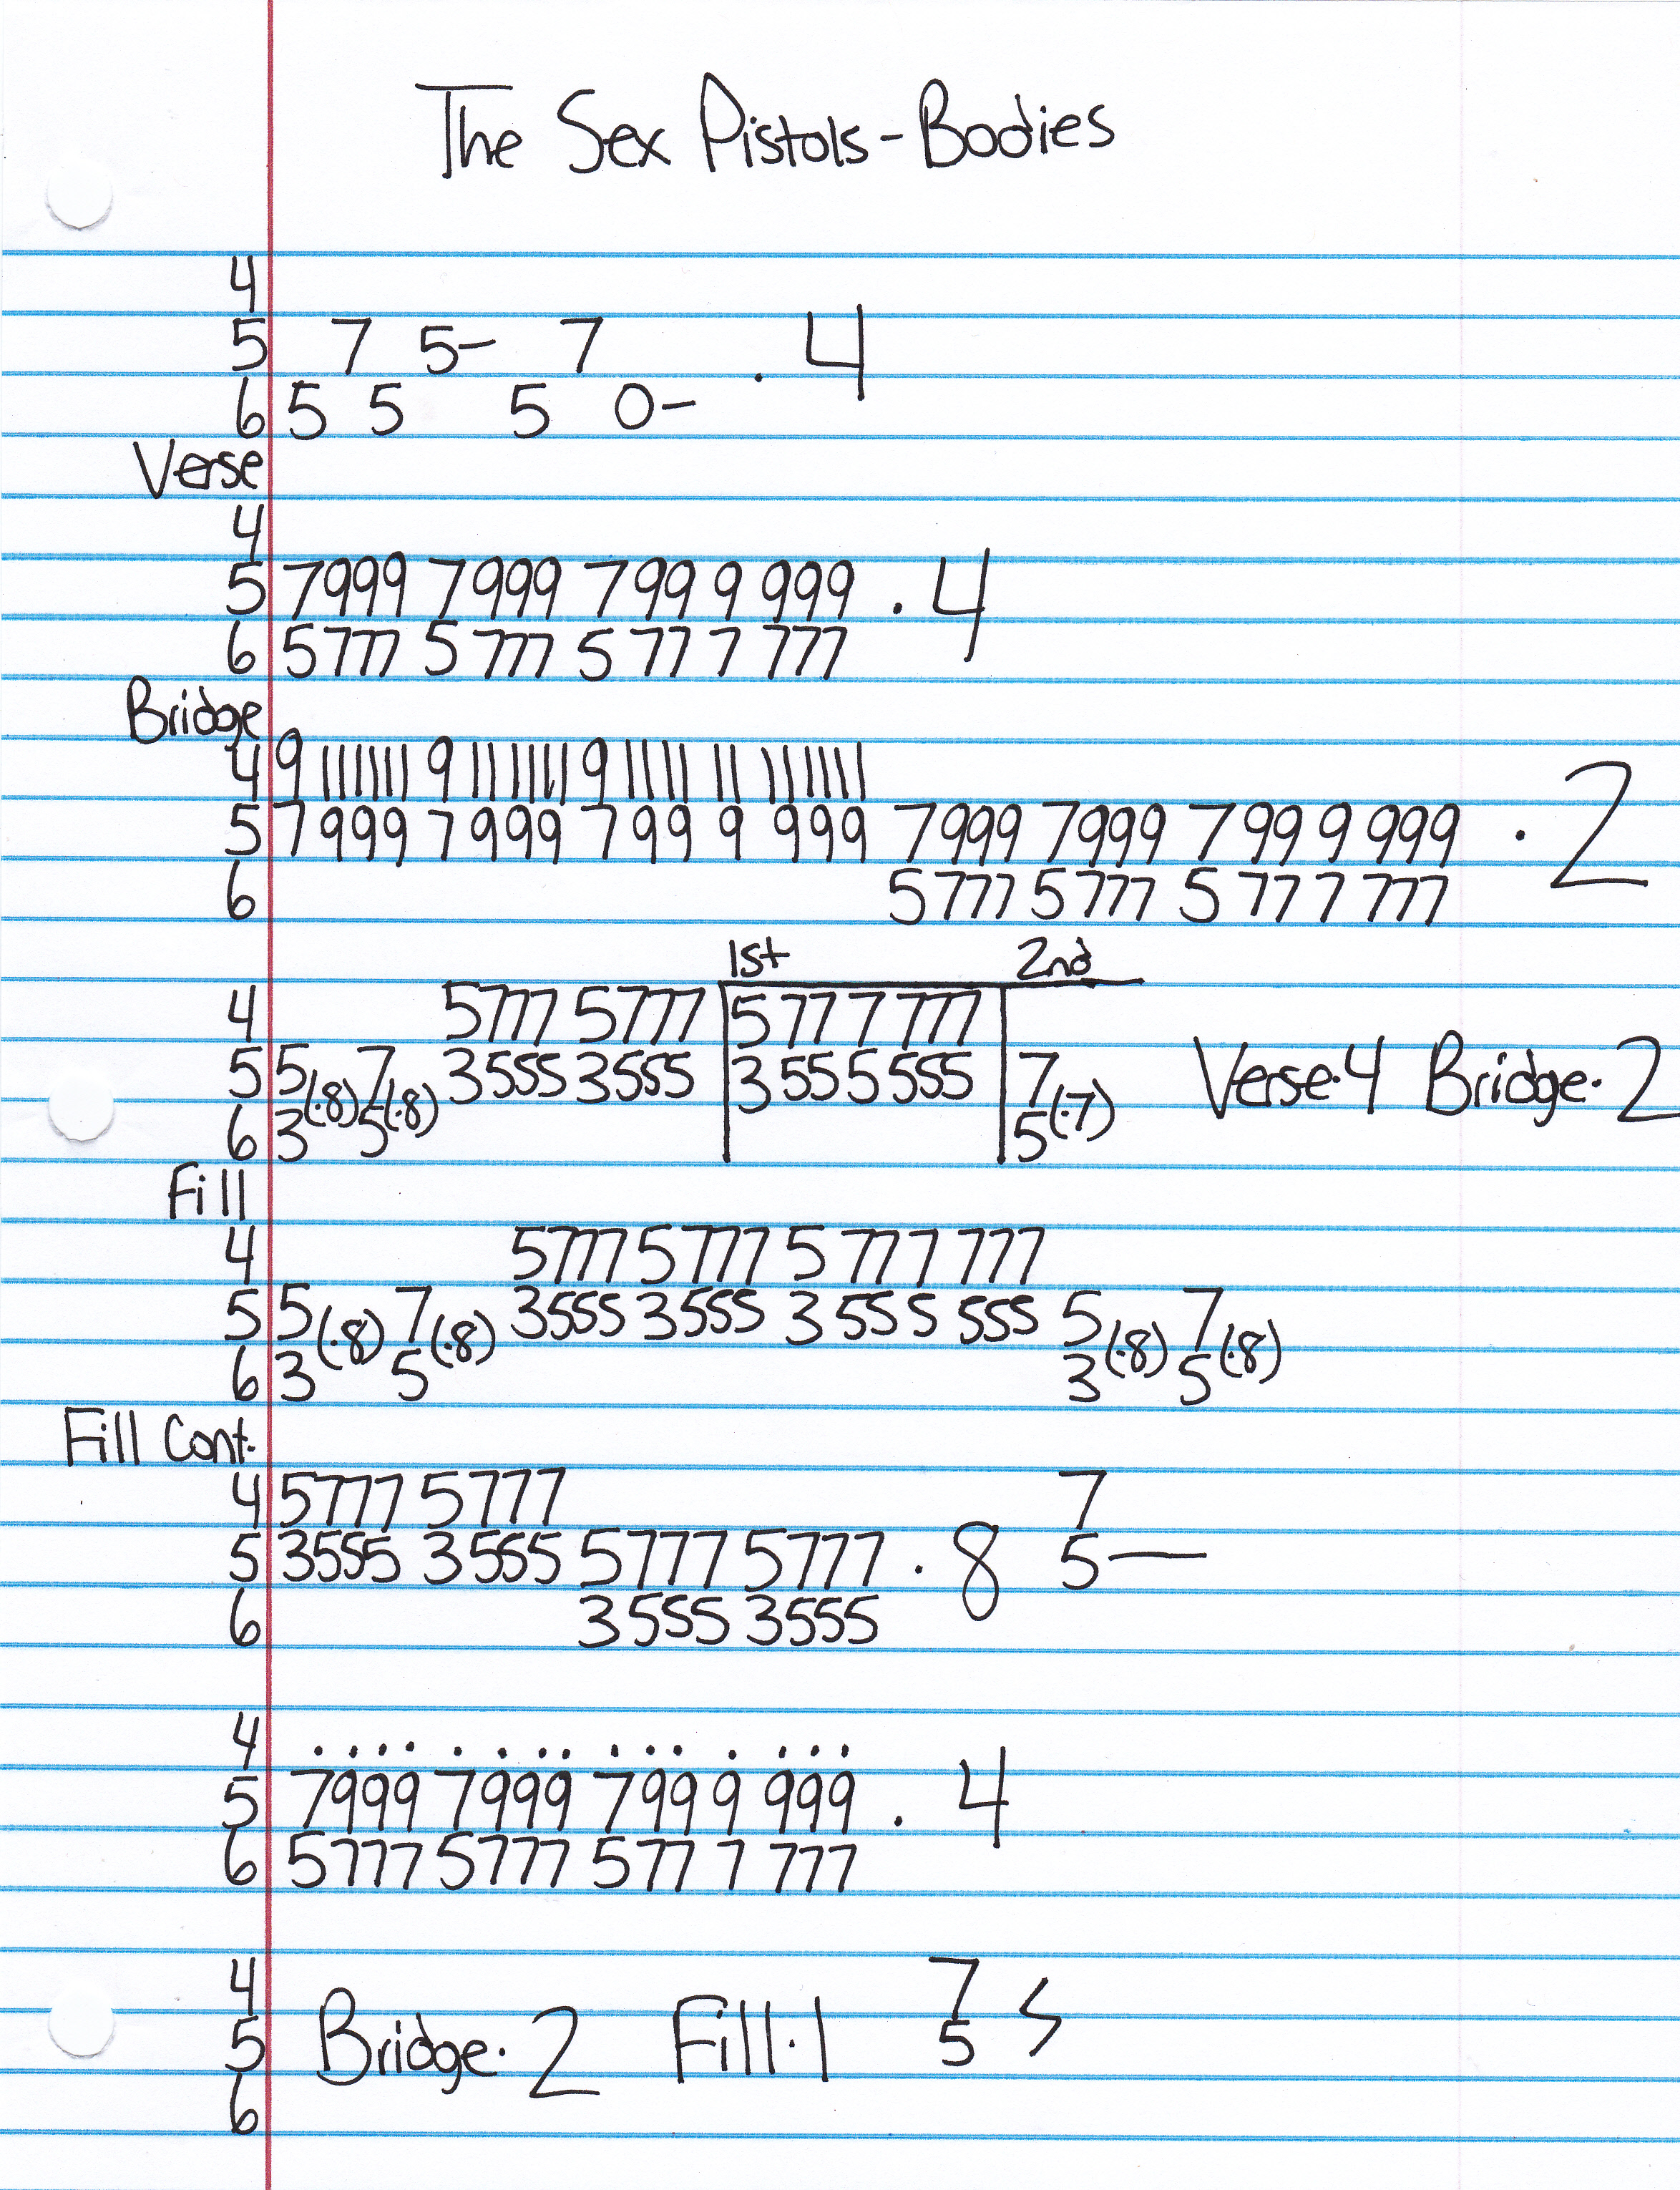 The Sex Pistols - Bodies
4
5 7 5- 7 . 4
6 5 5 5 0-
Verse
4
5 7999 7999 799 9 999 . 4
6 5777 5777 577 7 777
Bridge
4 9 11 11 11 9 11 11 11 9 11 11 11 11 11 11
5 7999 7999 799 9 999 7999 7999 799 9 999 . 2
6 5777 5777 577 7 777
1st 2nd
4 5777 5777 577 7 777
5 5(·8) 7(·8) 3555 3555 355 5 555 7(·7) Verse·4 Bridge·2
6 3 5 5
Fill
4 5777 5777 577 7 777
5 5(·8) 7(·8) 3555 3555 355 5 555 5(·8) 7(·8)
6 3 5 3 5
Fill Cont.
4 5777 5777 7
5 3555 3555 5777 5777 . 8 5—
6 3555 3555
4 . . . . . . . . . . . . . . .
5 7999 7999 799 9 999 . 4
6 5777 5777 577 7 777
4 7
5 Bridge·2 Fill·1 5
6